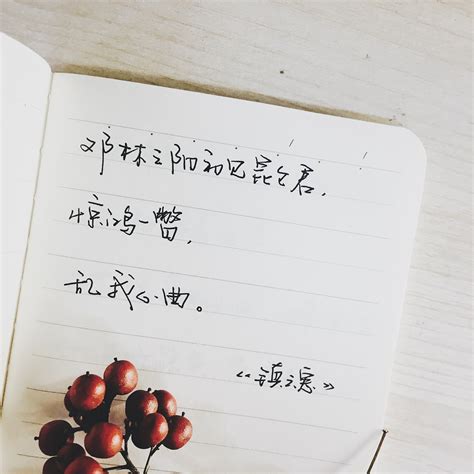 邓林之阴初见昆仑君，
惊鸿一瞥，
乱我心曲。
《镇魂》